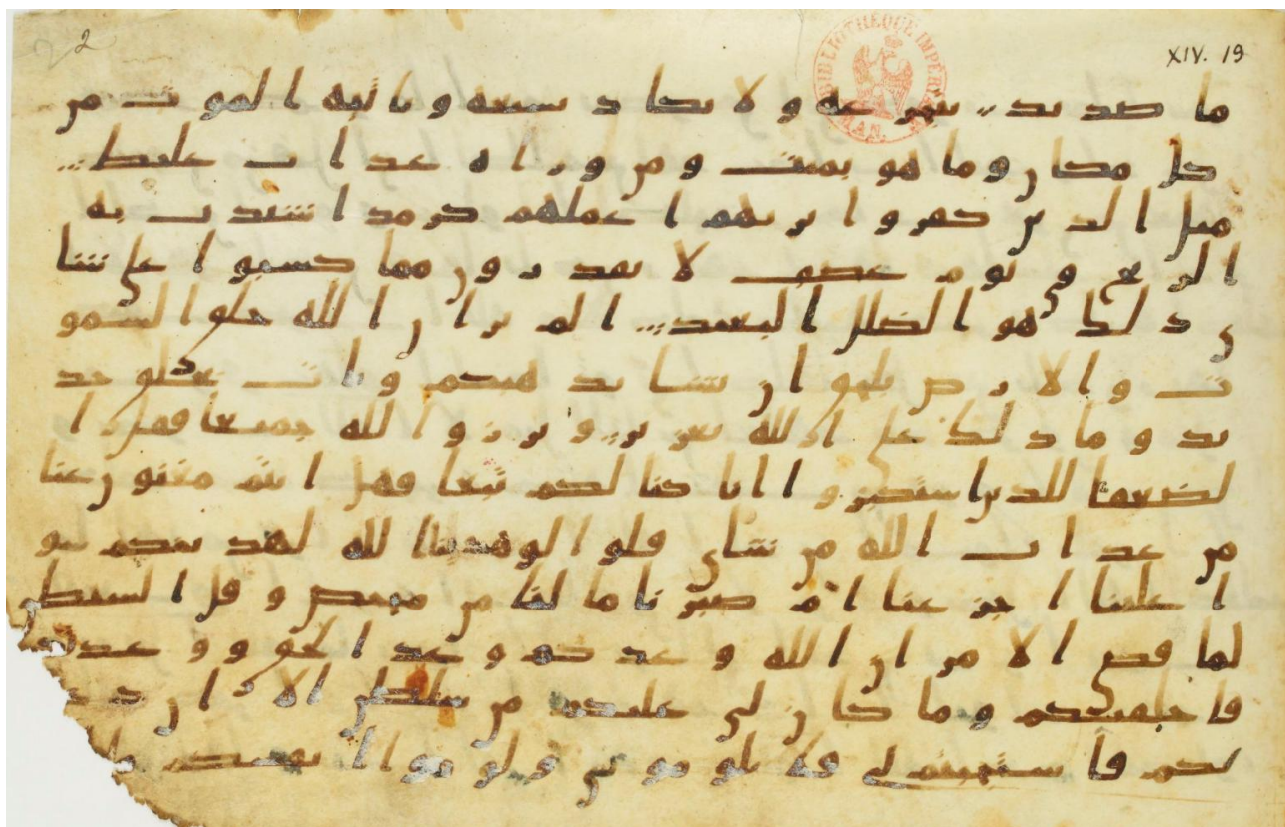 2
XIV. 19
BIBLIOTHÈQUE IMPÉRIALE MAN.
ما صديد يتجرعه ولا يكاد يسيغه وياتيه الموت من
كل مكان وما هو بميت ومن وراه عذاب غليظ
مثل الذين كفروا بربهم اعملهم كرمد اشتدت به
الريح في يوم عصف لا يقدرون مما كسبوا على شا
ي ذلك هو الضلل البعيد الم تر ان الله خلق السمو
ت والارض بلحق ان يشا يذهبكم ويات بخلق جد
يد وما ذلك على الله بعزيز وبرزوا لله جميعا فقل ا
لضعفا للذين استكبروا انا كنا لكم تبعا فهل انتم مغنون عنا
من عذاب الله من شاي قلوا لو هدينا الله لهديكم سو
ا علينا اجزعنا ام صبرنا ما لنا من محيص وقل الشيطن
لما قضي الامر ان الله وعدكم وعد الحق ووعدتكم
فاخلفتكم وما كان لي عليكم من سلطن الا ان دعو
تكم فاستجبتم لي فلا تلوموني ولوموا انفسكم ما